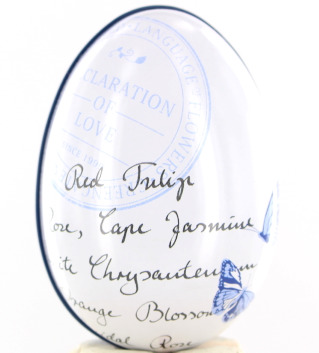 LANGUAGE FLOWER
CLARATION
OF
LOVE
Red Tulip
ose, Cape Jasmine
ite Chrysantemum
orange Blossom
idal Rose